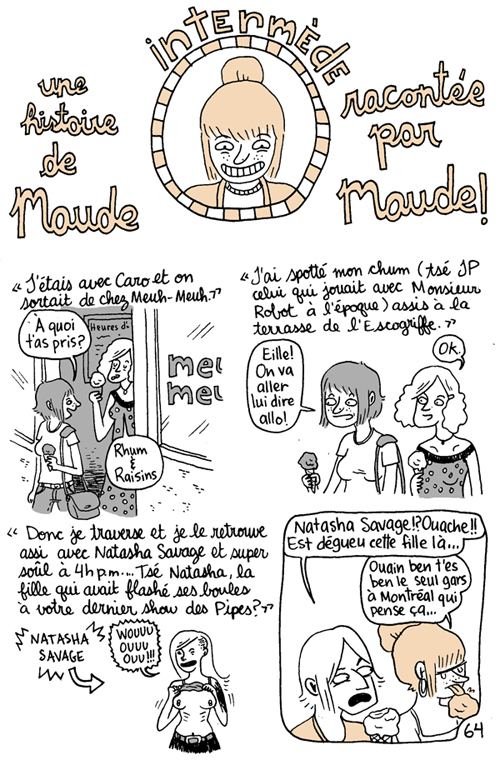 intermède
une
histoire
de
Maude
racontée
par
Maude!
"J'étais avec Caro et on
sortait de chez Meuh-Meuh."
À quoi
t'as pris?
Heures d'o
Rhum
&
Raisins
meu
meu
"J'ai spotté mon chum (tsé JP
celui qui jouait avec Monsieur
Robot à l'époque) assis à la
terrasse de l'Escogriffe."
Eille!
On va
aller
lui dire
allo!
Ok.
"Donc je traverse et je le retrouve
assi avec Natasha Savage et super
soûl à 4h p.m.... Tsé Natasha, la
fille qui avait flashé ses boules
à votre dernier show des Pipes?"
NATASHA
SAVAGE
WOUUU
OUUU
OUU!!!
Natasha Savage!?Ouache!!
Est dégueu cette fille là...
Ouain ben t'es
ben le seul gars
à Montréal qui
pense ça...
64